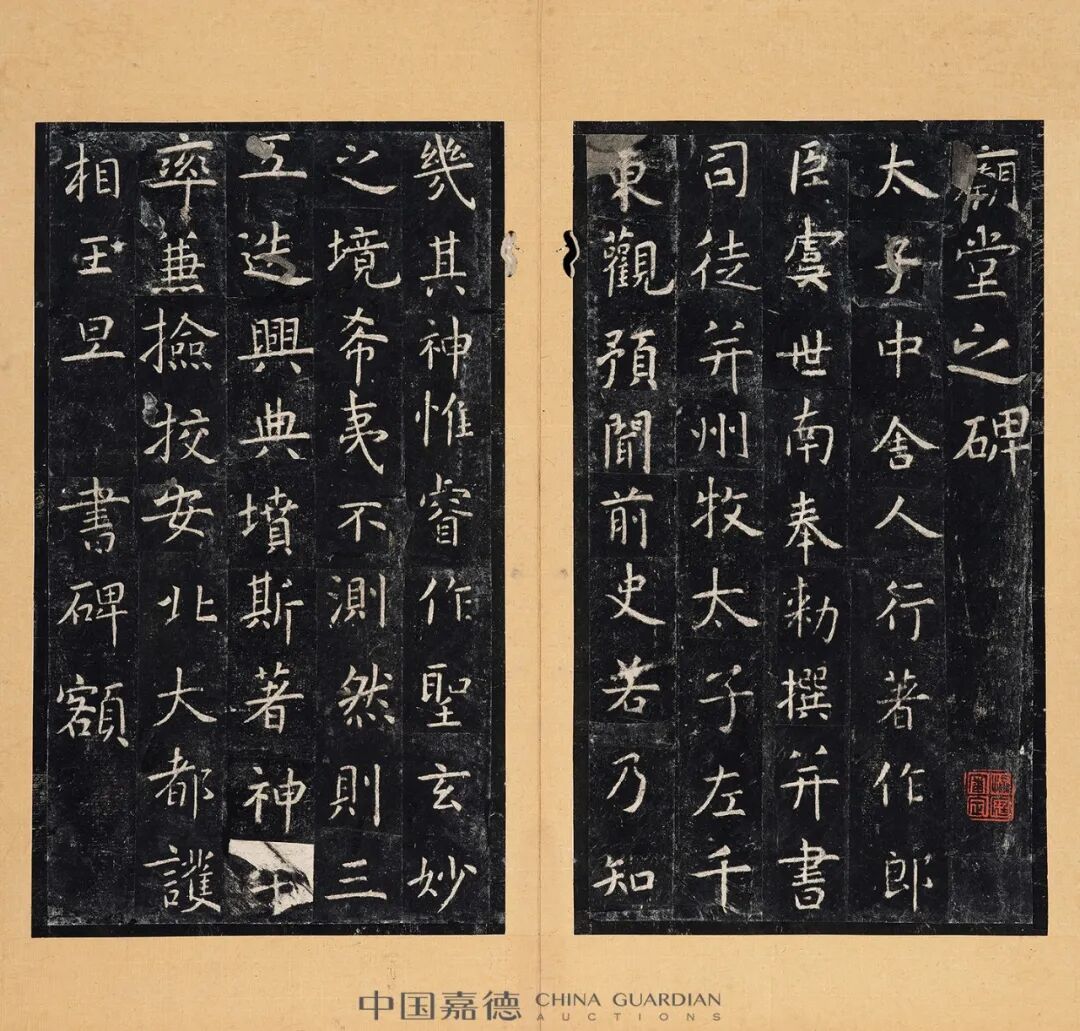 廟堂之碑
太子中舍人行著作郎
臣虞世南奉勅撰并書
司徒并州牧太子左千
東觀預聞前史若乃知
幾其神惟睿作聖玄妙
之境希夷不測然則三
五迭興典墳斯著神
率兼撿挍安北大都護
相王旦 書碑額
中国嘉德 CHINA GUARDIAN
AUCTIONS